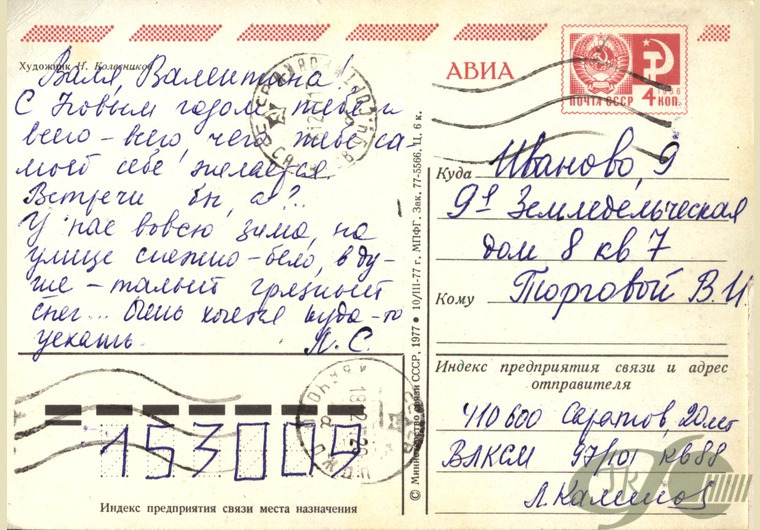 Художник Н. Колесников
Валя, Валентина!
С Новым годом тебя и
всего-всего, чего тебе са-
мой себе желается.
Встречи бы, а?..
У нас вовсю зима, на
улице снежно-бело, в ду-
ше - талый грязный
снег... Очень хочется куда-то
уехать. Л. С.
АВИА
ПОЧТА СССР 4 КОП.
Куда Иваново, 9
9я Земледельческая
дом 8 кв 7
Кому Торговой В. И.
Индекс предприятия связи и адрес
отправителя
410600 Саратов, 20 лет
ВЛКСМ 97/101 кв 88
Л. Камилов
153009
Индекс предприятия связи места назначения
© Министерство связи СССР, 1977 ● 10/III-77 г. МПФГ. Зак. 77-5566. Ц. 6 к.